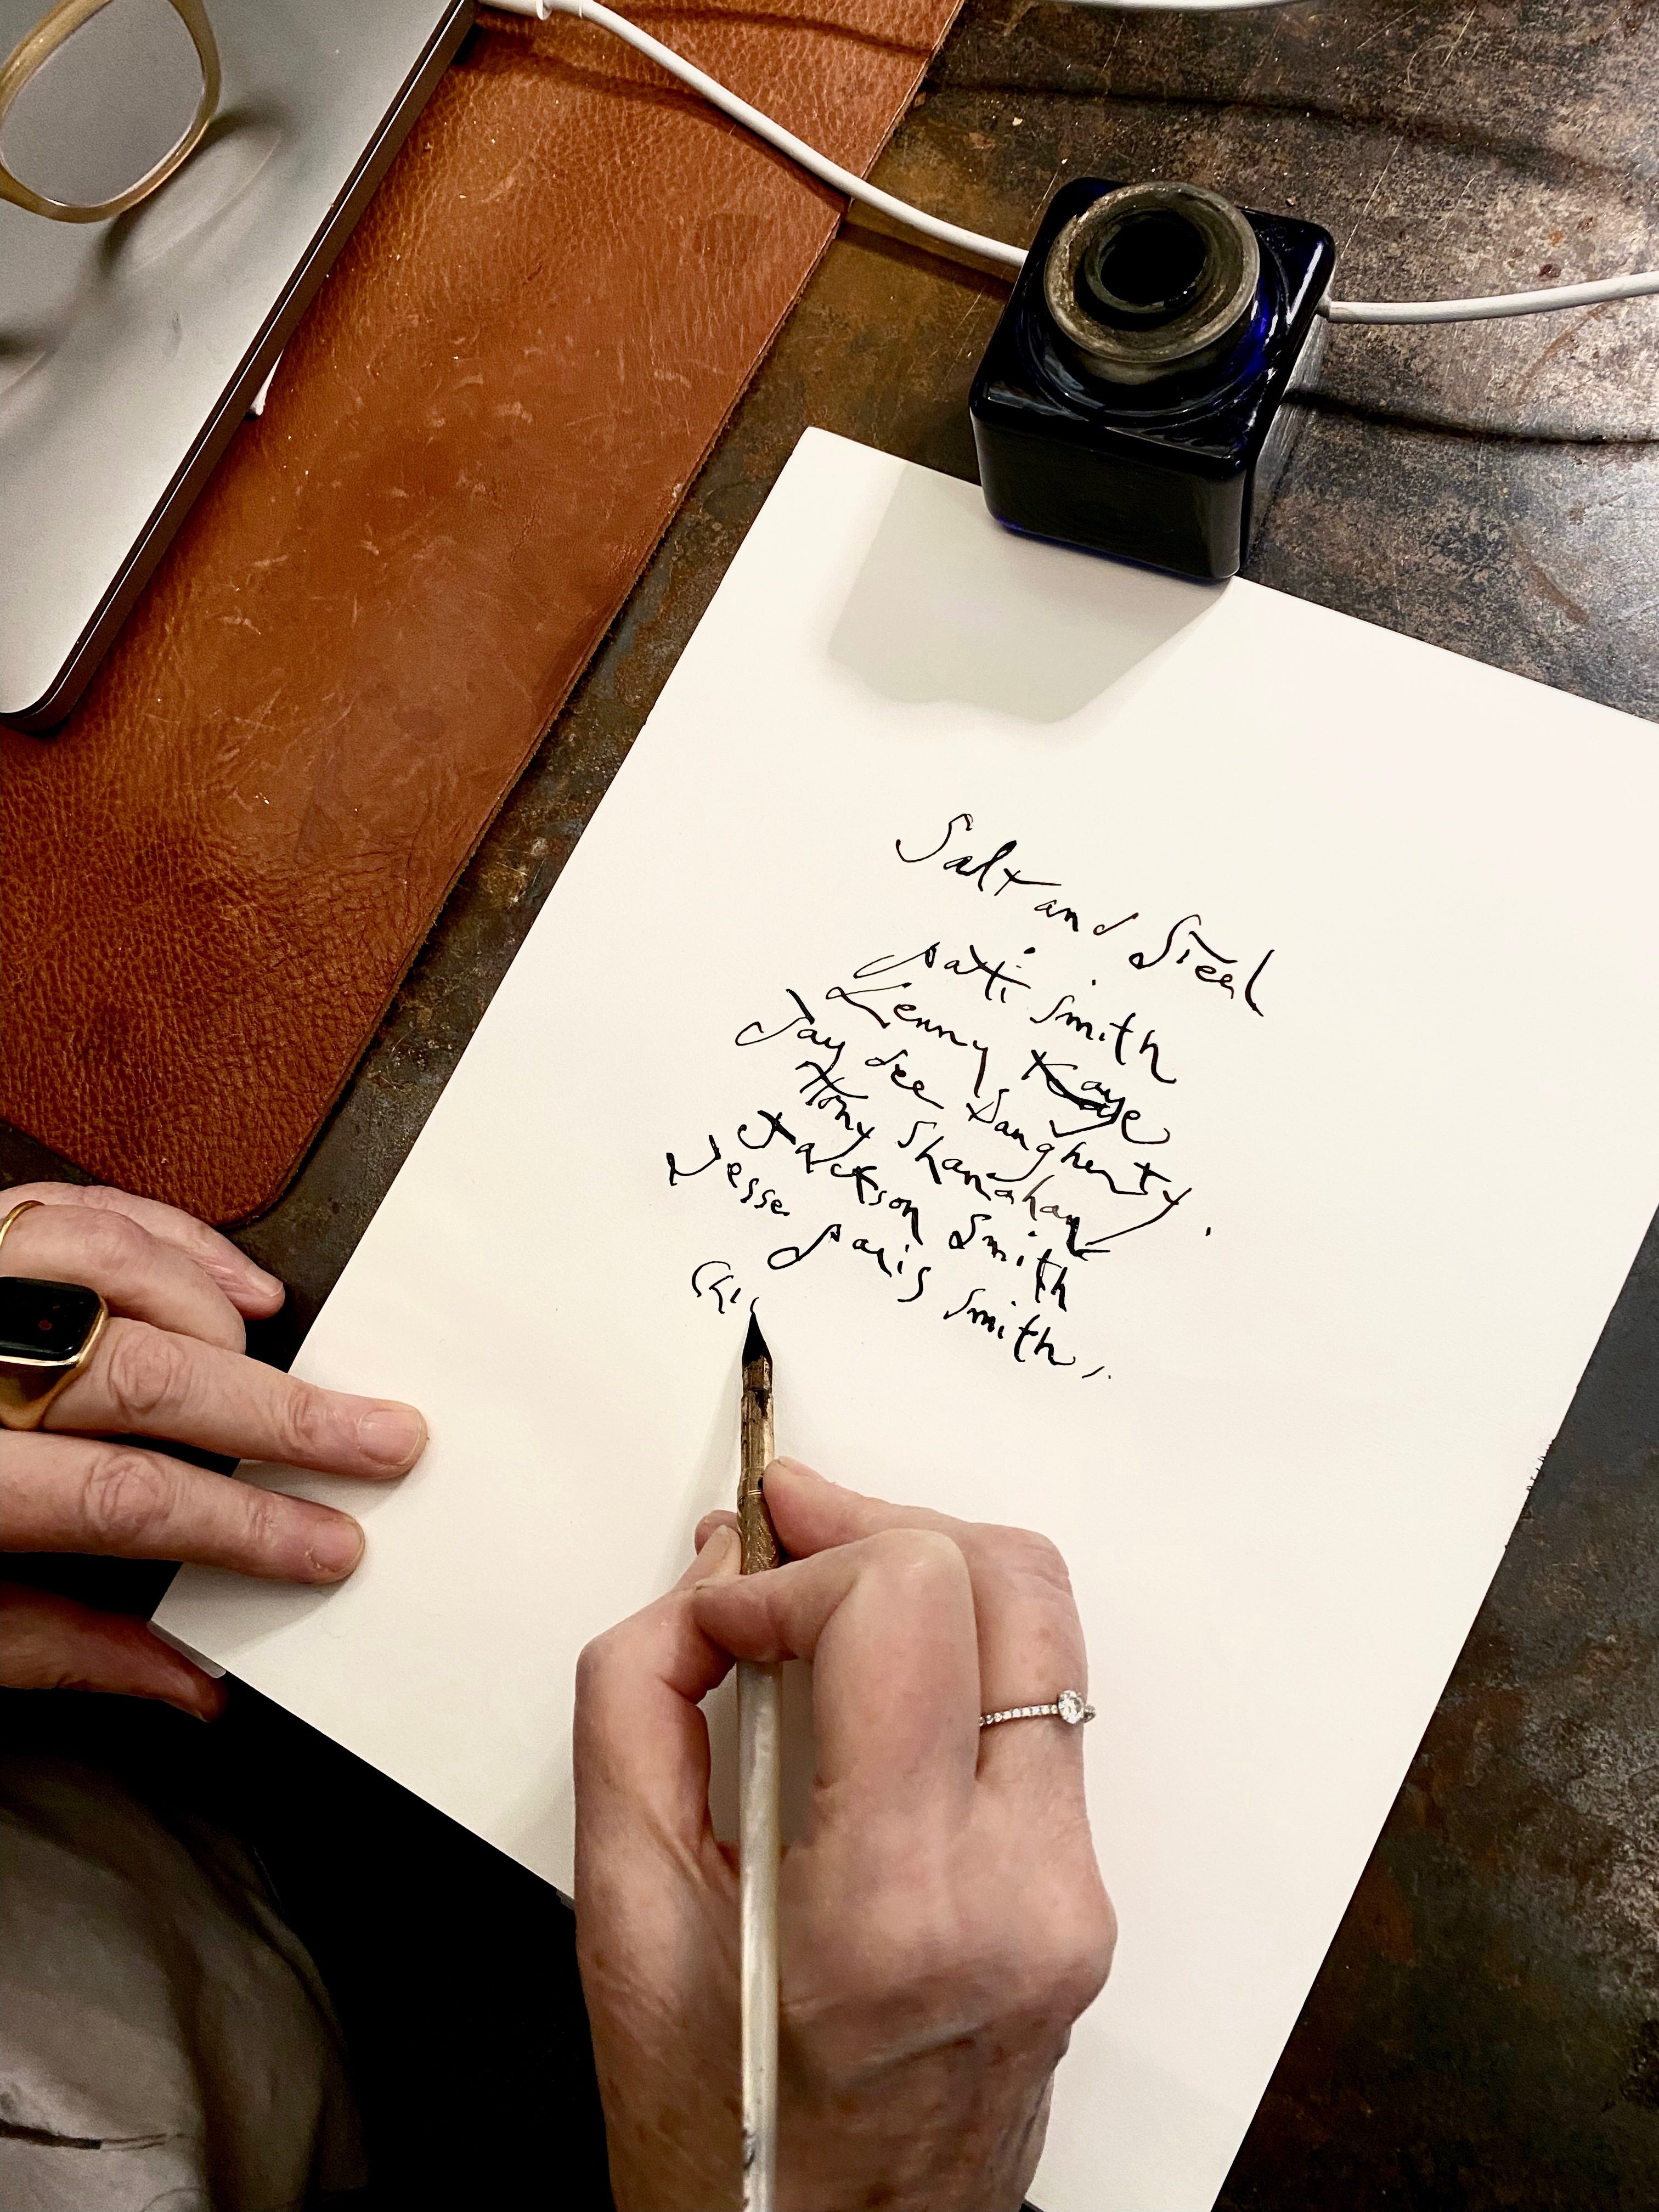 Salt and Steel
Patti Smith
Lenny Kaye
Jay Dee Daugherty.
Tony Shanahan
Jackson Smith
Jesse Paris Smith,